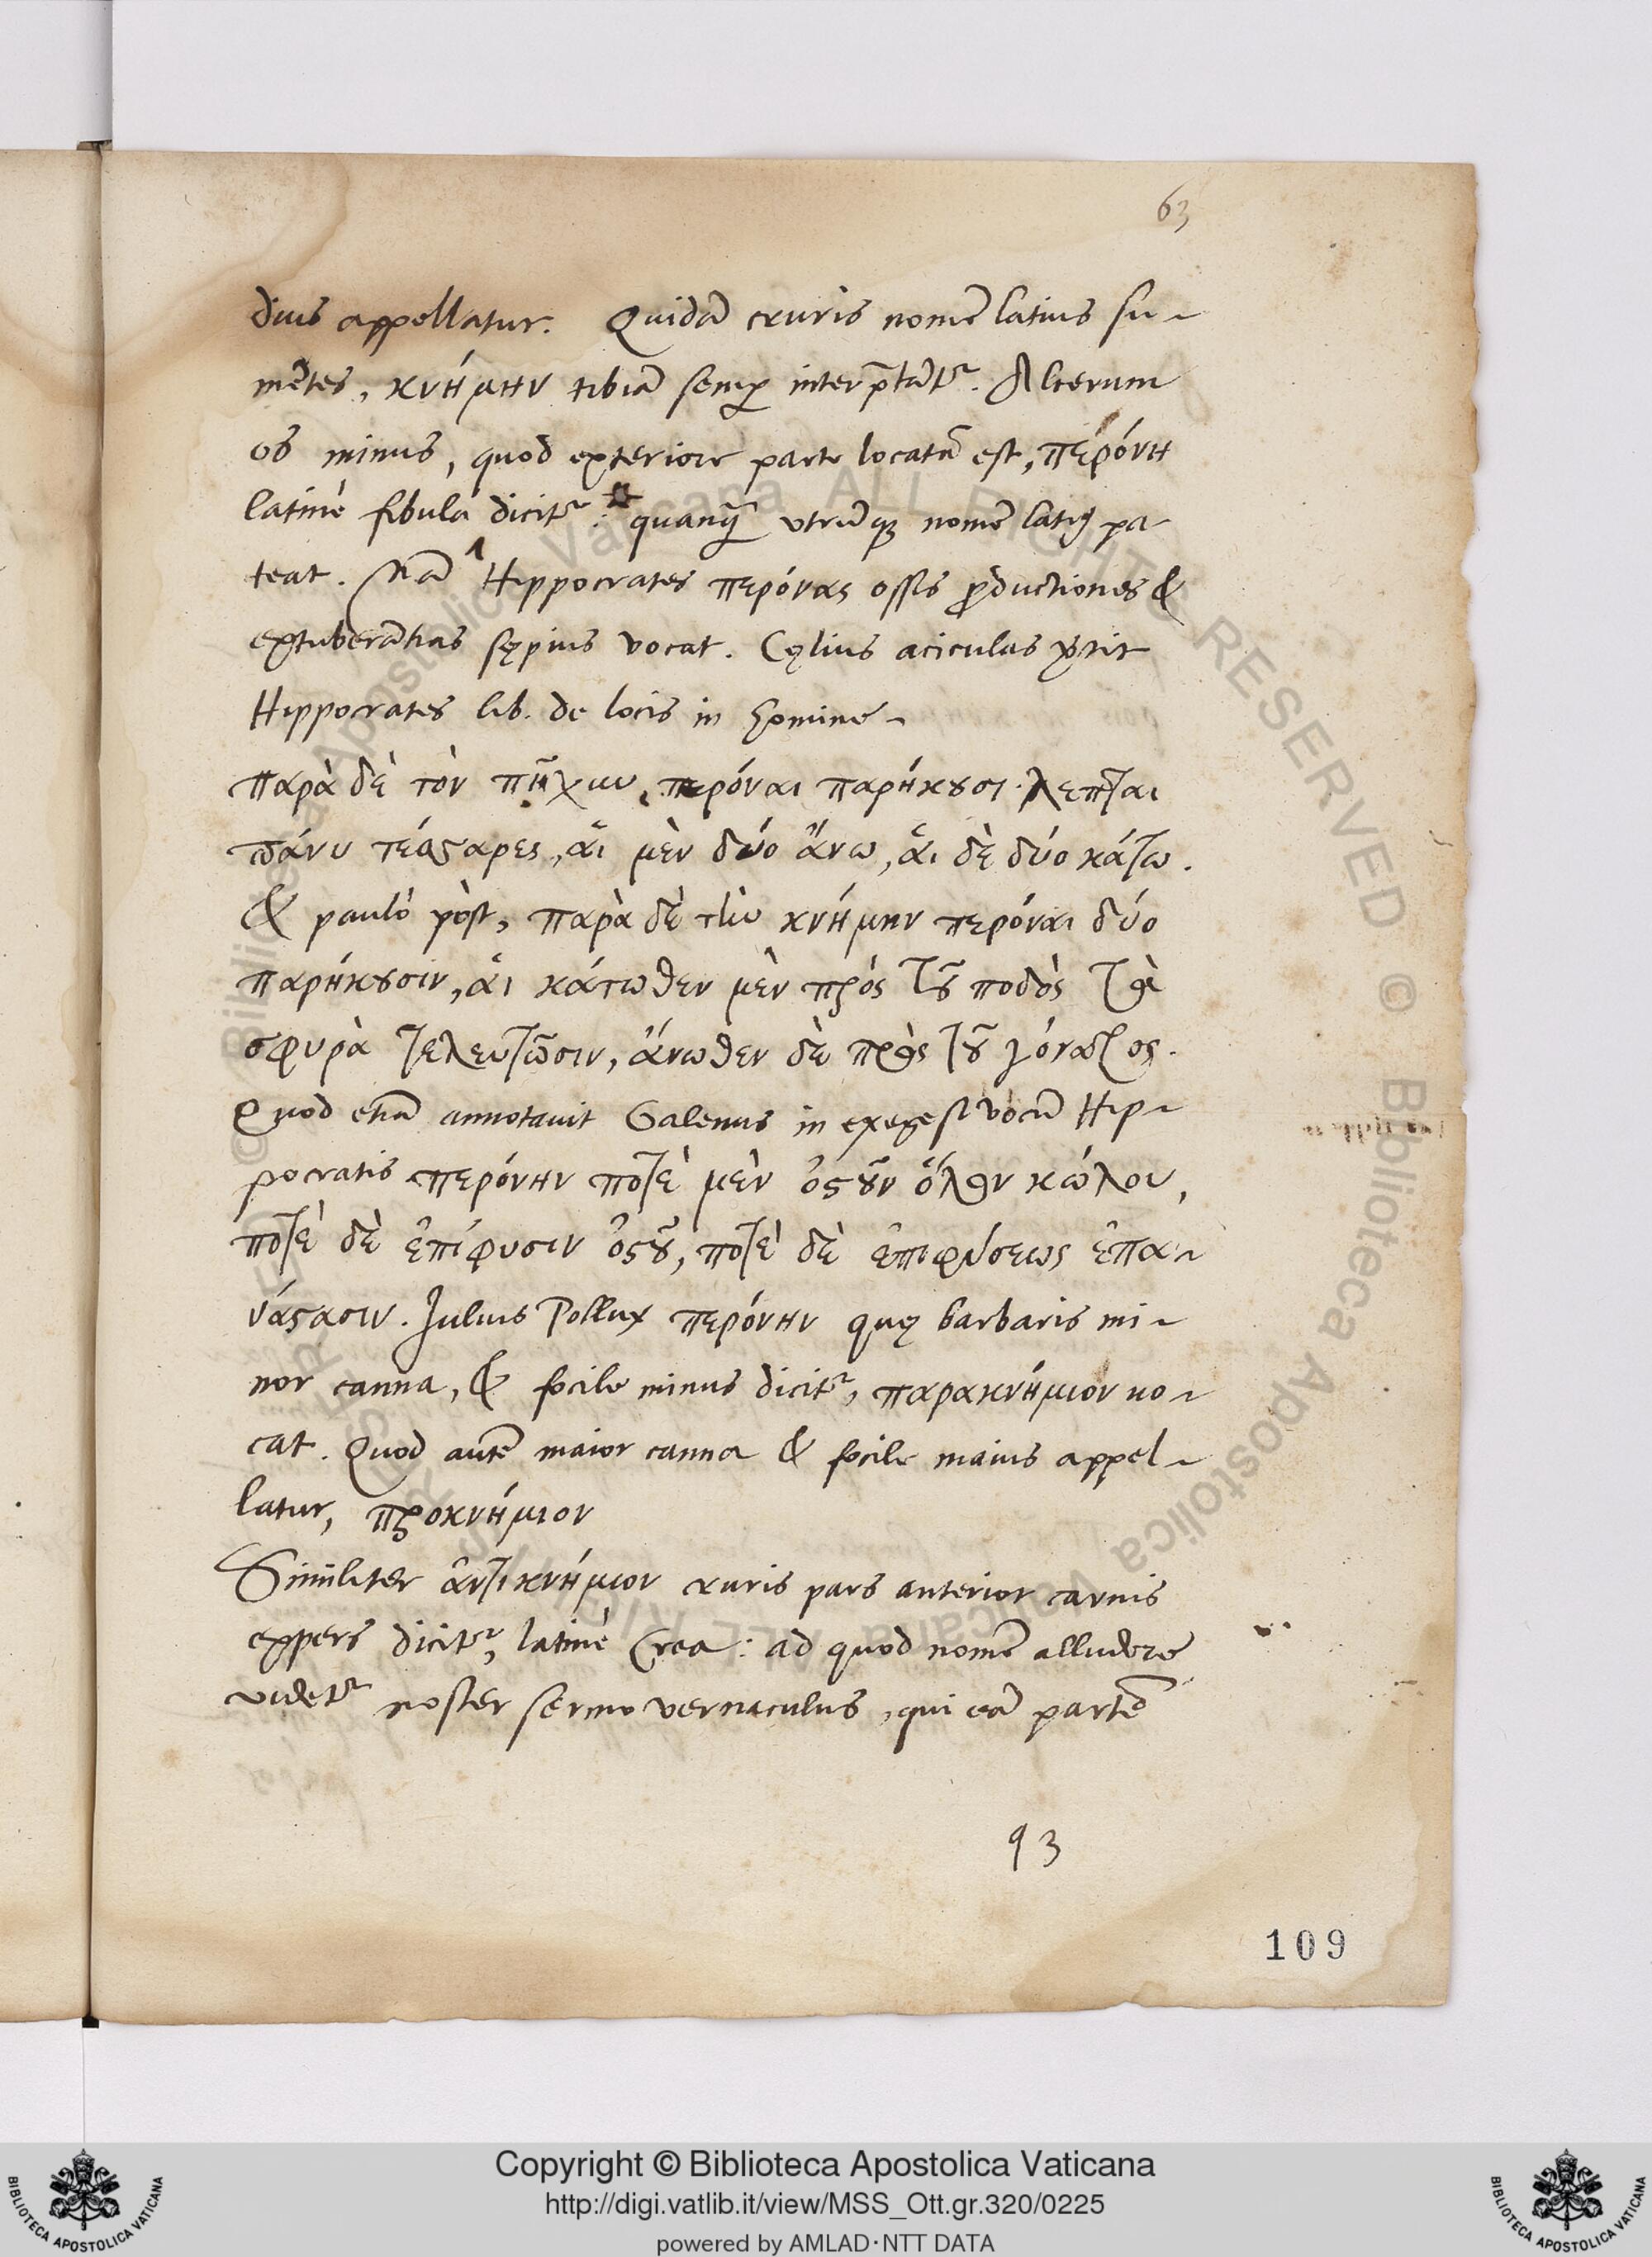 63
dius appellatur. Quidã cruris nomẽ latius su-
mẽtes, κνήμην tibiã semꝑ interp̃tãtʳ. Alterum
os minus, quod exteriore parte locatũ est, περόνη
latinè fibula dicitʳ: quanq̃ utrũqꝫ nomẽ latiꝰ pa-
teat. Nã Hippocrates περόνας ossis ꝓductiones &
extuberãtias sępius vocat. Cęlius aciculas
Hippocrates lib. de locis in homine-
παρὰ δὲ τὸν πῆχυν, περόναι παρήκουσι λεπταὶ
πάνυ τέσσαρες, αἵ μὲν δύο ἄνω, αἵ δὲ δύο κάτω.
& paulò pòst, παρὰ δὲ τὴν κνήμην περόναι δύο
παρήκουσιν, αἵ κάτωθεν μὲν πρὸς τοῦ ποδὸς τὰ
σφυρὰ τελευτῶσιν, ἄνωθεν δὲ πρὸς τοῦ γόνατος.
Quod etiã annotavit Galenus in exegesi vocũ Hip-
pocratis περόνην ποτὲ μὲν ὀστοῦν ὅλον κώλου,
ποτὲ δὲ ἐπίφυσιν ὀστοῦ, ποτὲ δὲ ἐπιφύσεως ἐπα-
νάστασιν. Julius Pollux περόνην quę barbaris mi-
nor canna, & focile minus dicitʳ, παρακνήμιον uo-
cat. Quod autẽ maior canna & focile maius appel-
latur, προκνήμιον
Similiter ἀντικνήμιον cruris pars anterior carnis
expers dicitʳ, latinè Crea: ad quod nomẽ alludere
videtʳ noster sermo vernaculus, qui eã partẽ
93
109
Copyright © Biblioteca Apostolica Vaticana
http://digi.vatlib.it/view/MSS_Ott.gr.320/0225
powered by AMLAD·NTT DATA